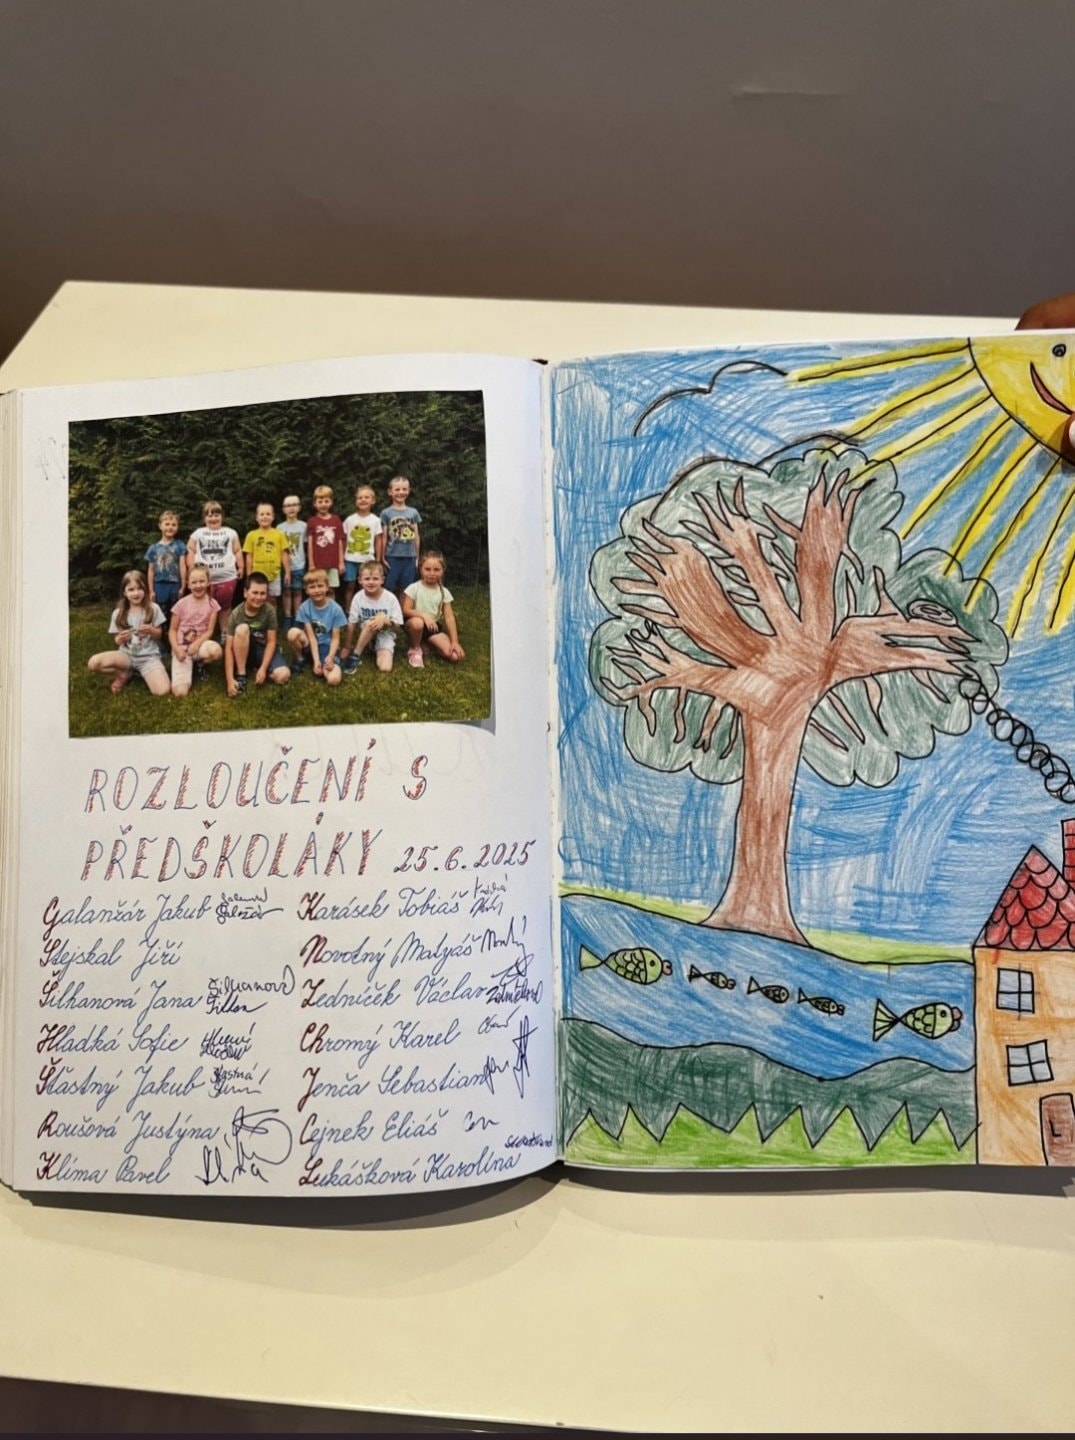 ROZLOUČENÍ S
PŘEDŠKOLÁKY 25.6.2025
Galanžár Jakub
Stejskal Jiří
Šilhanová Jana
Hladká Sofie
Šťastný Jakub
Roušová Justýna
Klíma Pavel
Karásek Tobiáš
Novotný Matyáš
Ledníček Václav
Chromý Karel
Jenča Sebastian
Cejnek Eliáš
Lukášková Karolína